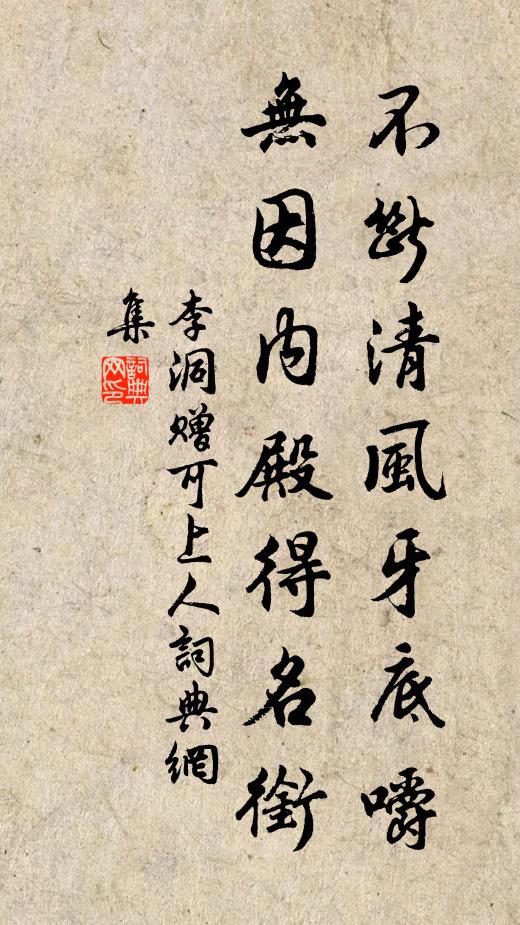 不斷清風牙底嚼
無因内殿得名銜
李洞贈可上人詞典網
集
詞典
网印